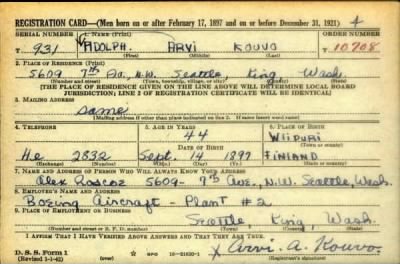 REGISTRATION CARD—(Men born on or after February 17, 1897 and on or before December 31, 1921)
SERIAL NUMBER 1. NAME (Print) ORDER NUMBER
T 931 ADOLPH ARVI KOUVO T 10708
(First) (Middle) (Last)
2. PLACE OF RESIDENCE (Print)
5609 7th Av. N.W. Seattle King Wash.
(Number and street) (Town, township, village, or city) (County) (State)
[THE PLACE OF RESIDENCE GIVEN ON THE LINE ABOVE WILL DETERMINE LOCAL BOARD
JURISDICTION; LINE 2 OF REGISTRATION CERTIFICATE WILL BE IDENTICAL]
3. MAILING ADDRESS
same
[Mailing address if other than place indicated on line 2. If same insert word same]
4. TELEPHONE 5. AGE IN YEARS 6. PLACE OF BIRTH
44 Wiipuri
DATE OF BIRTH (Town or county)
He 2832 Sept. 14 1897 FINLAND
(Exchange) (Number) (Mo.) (Day) (Yr.) (State or country)
7. NAME AND ADDRESS OF PERSON WHO WILL ALWAYS KNOW YOUR ADDRESS
Alex Roscoe 5609- 7th Ave., N.W. Seattle, Wash.
8. EMPLOYER'S NAME AND ADDRESS
Boeing Aircraft - Plant #2
9. PLACE OF EMPLOYMENT OR BUSINESS
Seattle, King, Wash.
(Number and street or R. F. D. number) (Town) (County) (State)
I AFFIRM THAT I HAVE VERIFIED ABOVE ANSWERS AND THAT THEY ARE TRUE.
D. S. S. Form 1
(Revised 1-1-42) GPO 16-21630-1 x Arvi. A. Kouvo.
(Registrant's signature)